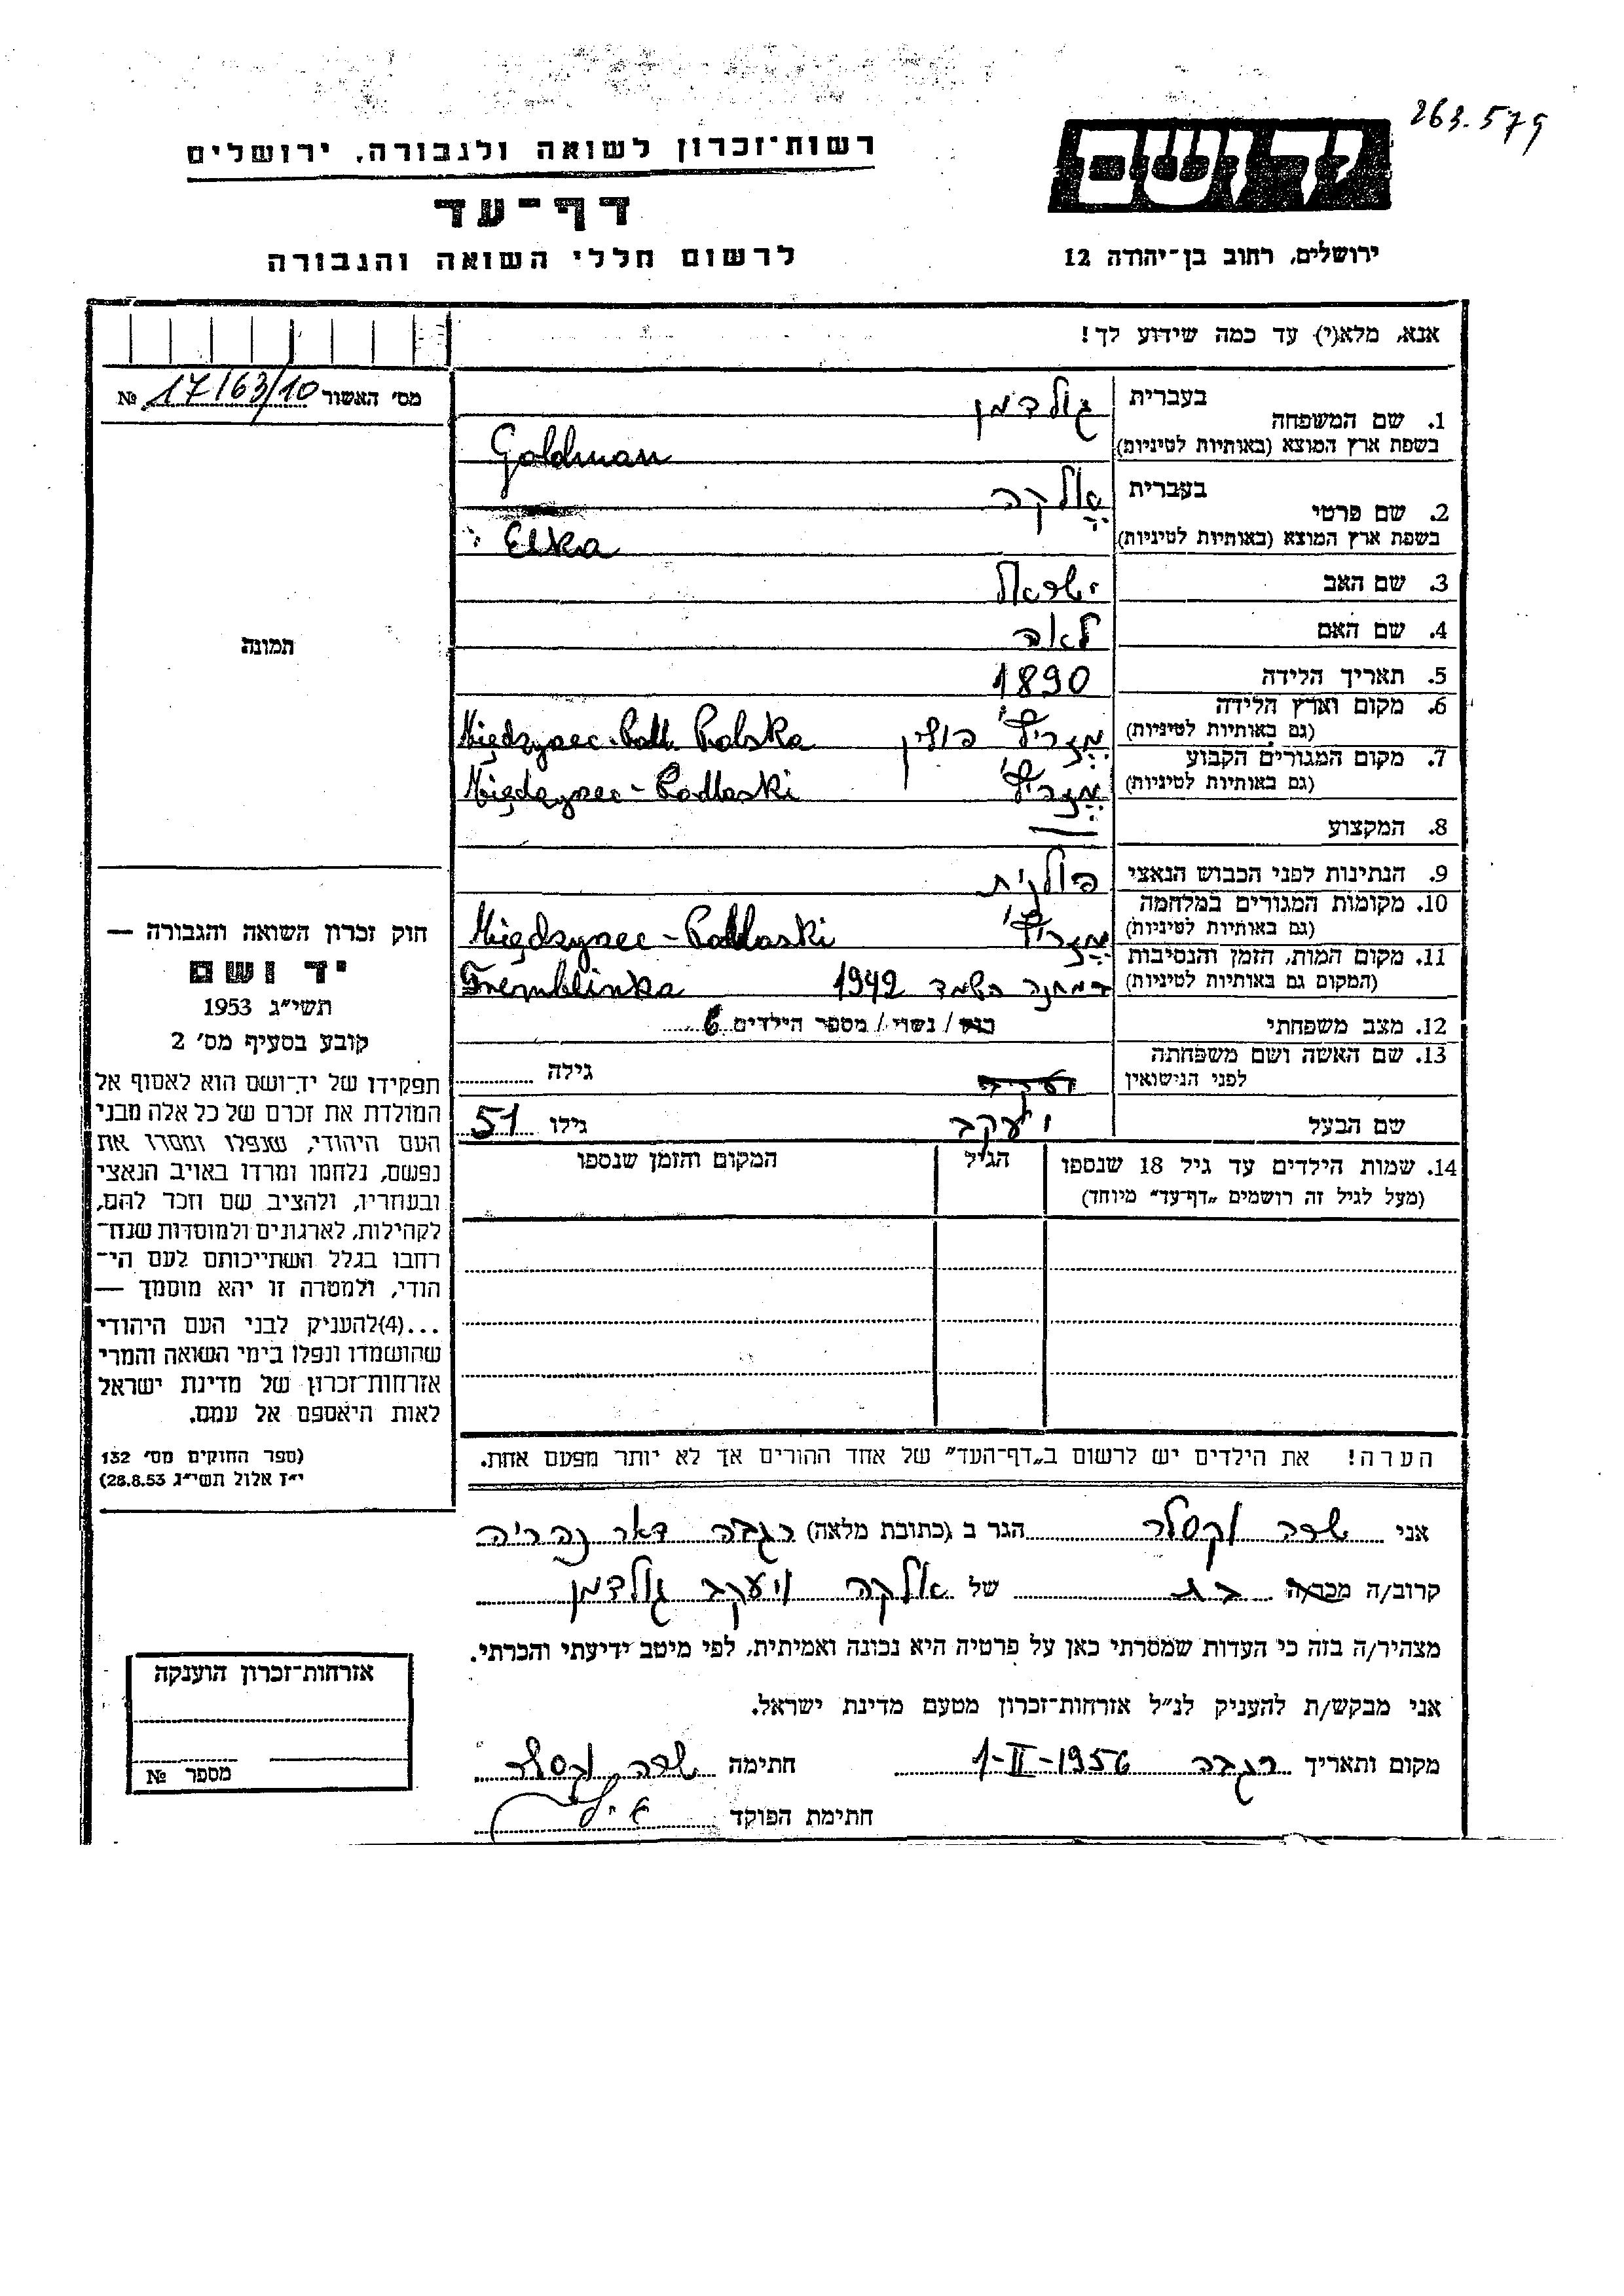 263.579
יד ושם
רשות־זכרון לשואה ולגבורה, ירושלים
דף־עד
לרשום חללי השואה והגבורה
ירושלים, רחוב בן־יהודה 12
אנא, מלא(י) עד כמה שידוע לך!
מס' האשור 17/63/10 №
1. שם המשפחה בעברית גולדמן
בשפת ארץ המוצא (באותיות לטיניות) Goldman
2. שם פרטי בעברית אלקה
בשפת ארץ המוצא (באותיות לטיניות) Elka
3. שם האב ישראל
4. שם האם לאה
5. תאריך הלידה 1890
6. מקום וארץ הלידה
(גם באותיות לטיניות) פולין Międzyrzec-Podl. Polska
7. מקום המגורים הקבוע
(גם באותיות לטיניות) Międzyrzec-Podlaski
8. המקצוע —
9. הנתינות לפני הכבוש הנאצי פולנית
10. מקומות המגורים במלחמה
(גם באותיות לטיניות) Międzyrzec-Podlaski
11. מקום המות, הזמן והנסיבות
(המקום גם באותיות לטיניות) במחנה השמד 1942 Tremblinka
12. מצב משפחתי רווק / נשוי / מספר הילדים 6
13. שם האשה ושם משפחתה
לפני הנישואין גילה
שם הבעל יעקב גילו 51
14. שמות הילדים עד גיל 18 שנספו
(מעל לגיל זה רושמים „דף־עד" מיוחד)
הגיל
המקום והזמן שנספו
הערה! את הילדים יש לרשום ב„דף־העד" של אחד ההורים אך לא יותר מפעם אחת.
אני שרה וקסלר הגר ב (כתובת מלאה) רגבה דאר נהריה
קרוב/ה מכר/ה בת של אלקה ויעקב גולדמן
מצהיר/ה בזה כי העדות שמסרתי כאן על פרטיה היא נכונה ואמיתית, לפי מיטב ידיעתי והכרתי.
אני מבקש/ת להעניק לנ"ל אזרחות־זכרון מטעם מדינת ישראל.
מקום ותאריך רגבה 1-II-1956 חתימה שרה וקסלר
חתימת הפוקד
תמונה
חוק זכרון השואה והגבורה —
יד ושם
תשי"ג 1953
קובע בסעיף מס' 2
תפקידו של יד־ושם הוא לאסוף אל
המולדת את זכרם של כל אלה מבני
העם היהודי, שנפלו ומסרו את
נפשם, נלחמו ומרדו באויב הנאצי
ובעוזריו, ולהציב שם וזכר להם,
לקהילות, לארגונים ולמוסדות שנח־
רבו בגלל השתייכותם לעם הי־
הודי, ולמטרה זו יהא מוסמך —
...(4)להעניק לבני העם היהודי
שהושמדו ונפלו בימי השואה והמרי
אזרחות־זכרון של מדינת ישראל
לאות היאספם אל עמם.
(ספר החוקים מס' 132
י"ז אלול תשי"ג 28.8.53)
אזרחות־זכרון הוענקה
מספר №